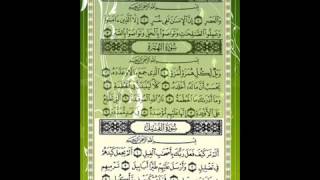 وَالْعَصْرِ ۝ إِنَّ الْإِنسَانَ لَفِي خُسْرٍ ۝ إِلَّا الَّذِينَ آمَنُوا
وَعَمِلُوا الصَّالِحَاتِ وَتَوَاصَوْا بِالْحَقِّ وَتَوَاصَوْا بِالصَّبْرِ ۝
سُورَةُ الْهُمَزَةِ
بِسْمِ اللَّهِ الرَّحْمَٰنِ الرَّحِيمِ
وَيْلٌ لِّكُلِّ هُمَزَةٍ لُّمَزَةٍ ۝ الَّذِي جَمَعَ مَالًا وَعَدَّدَهُ ۝
يَحْسَبُ أَنَّ مَالَهُ أَخْلَدَهُ ۝ كَلَّا لَيُنبَذَنَّ فِي الْحُطَمَةِ ۝
وَمَا أَدْرَاكَ مَا الْحُطَمَةُ ۝ نَارُ اللَّهِ الْمُوقَدَةُ ۝ الَّتِي تَطَّلِعُ
عَلَى الْأَفْئِدَةِ ۝ إِنَّهَا عَلَيْهِم مُّؤْصَدَةٌ ۝ فِي عَمَدٍ مُّمَدَّدَةٍ ۝
سُورَةُ الْفِيلِ
بِسْمِ اللَّهِ الرَّحْمَٰنِ الرَّحِيمِ
أَلَمْ تَرَ كَيْفَ فَعَلَ رَبُّكَ بِأَصْحَابِ الْفِيلِ ۝ أَلَمْ يَجْعَلْ كَيْدَهُمْ
فِي تَضْلِيلٍ ۝ وَأَرْسَلَ عَلَيْهِمْ طَيْرًا أَبَابِيلَ ۝ تَرْمِيهِم